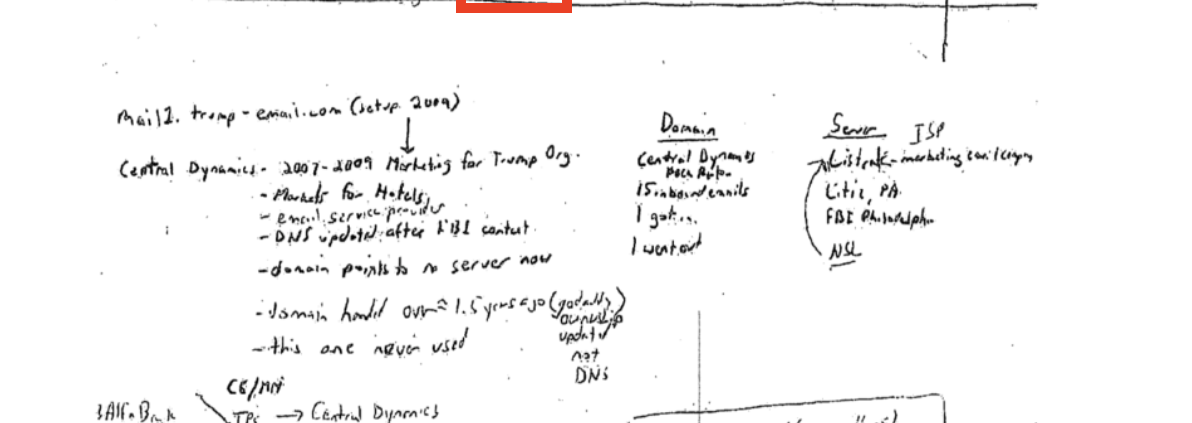 mail1. trump-email.com (setup 2009)
Central Dynamics - 2007-2009 Marketing for Trump Org.
- Markets for Hotels,
- email service provider
- DNS updated after FBI contact.
- domain points to no server now
- domain handed over ≈ 1.5 years ago (godaddy)
ownership
updated
not
DNS
- this one never used
Domain
Central Dynamics
15 inbound emails
1 got in
1 went out
Server ISP
Listrak - marketing email company
Litiz, PA
FBI Philadelph
NSL
Alfa Bank
→ Central Dynamics